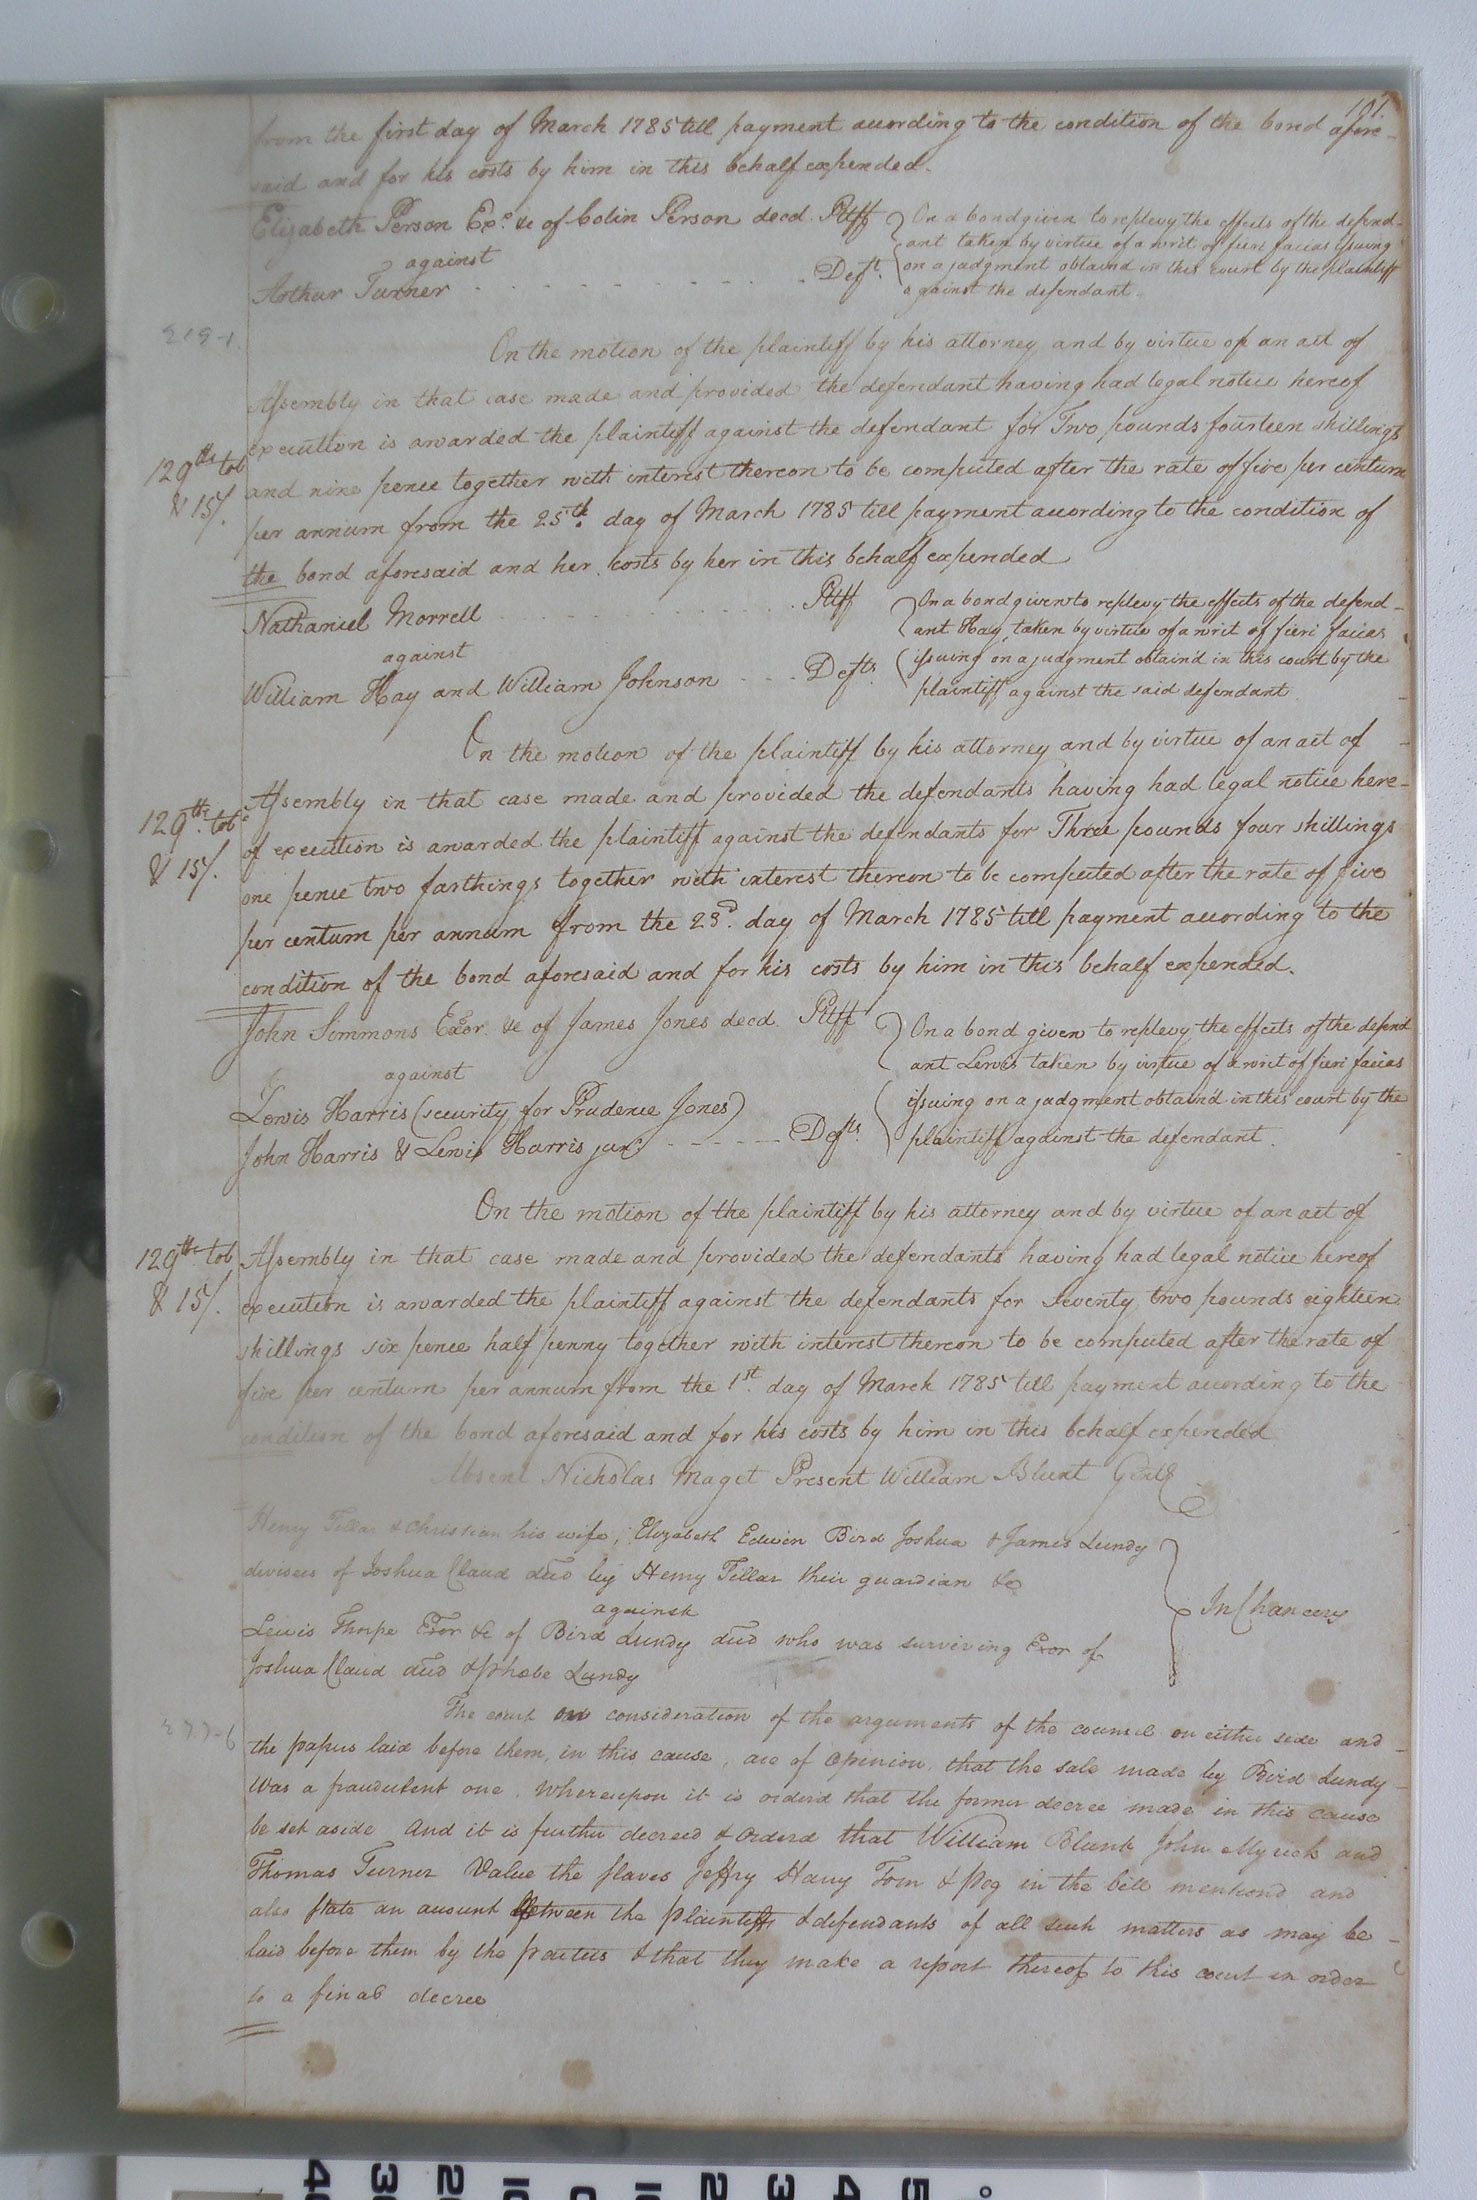 101.
from the first day of March 1785 till payment according to the condition of the bond afore-
said and for his costs by him in this behalf expended.
Elizabeth Person Exx. &c of Colin Person decd. Pltff
against
Arthur Turner Deft.
On a bond given to replevy the effects of the defend-
ant taken by virtue of a writ of fieri facias issuing
on a judgment obtaind in this court by the plaintiff
against the defendant.
On the motion of the plaintiff by his attorney and by virtue of an act of
Assembly in that case made and provided the defendant having had legal notice hereof
execution is awarded the plaintiff against the defendant for Two pounds fourteen shillings
129th tob
& 15/.
and nine pence together with interest thereon to be computed after the rate of five per centum
per annum from the 25th. day of March 1785 till payment according to the condition of
the bond aforesaid and her costs by her in this behalf expended
Nathaniel Morrell Pltff
against
William Hay and William Johnson Defts.
On a bond given to replevy the effects of the defend-
ant Hay taken by virtue of a writ of fieri facias
issuing on a judgment obtain'd in this court by the
plaintiff against the said defendant
On the motion of the plaintiff by his attorney and by virtue of an act of
Assembly in that case made and provided the defendants having had legal notice here-
129th. tob
& 15/.
of execution is awarded the plaintiff against the defendants for Three pounds four shillings
one pence two farthings together with interest thereon to be computed after the rate of five
per centum per annum from the 23d. day of March 1785 till payment according to the
condition of the bond aforesaid and for his costs by him in this behalf expended.
John Simmons Exor. &c of James Jones decd. Pltff
against
Lewis Harris (security for Prudence Jones)
John Harris & Lewis Harris junr. Defts.
On a bond given to replevy the effects of the defend
ant Lewis taken by virtue of a writ of fieri facias
issuing on a judgment obtain'd in this court by the
plaintiff against the defendant.
On the motion of the plaintiff by his attorney and by virtue of an act of
129th tob
& 15/.
Assembly in that case made and provided the defendants having had legal notice hereof
execution is awarded the plaintiff against the defendants for Seventy two pounds eighteen
shillings six pence half penny together with interest thereon to be computed after the rate of
five per centum per annum from the 1st. day of March 1785 till payment according to the
condition of the bond aforesaid and for his costs by him in this behalf expended
Absent Nicholas Maget Present William Blunt Gent
Henry Tillar & Christian his wife, Elizabeth Edwin Bird Joshua & James Lundy
devisees of Joshua Claud decd by Henry Tillar their guardian &c
against
Lewis Thorpe Exor &c of Bird Lundy decd who was surviving Exor of
Joshua Claud decd & Phoebe Lundy
In Chancery
The court on consideration of the arguments of the council on either side and
the papers laid before them, in this cause, are of opinion, that the sale made by Bird Lundy
was a fraudulent one. Whereupon it is orderd that the former decree made in this cause
be set aside And it is further decreed & orderd that William Blunt John Myrick and
Thomas Turner Value the slaves Jeffry Harry Tom & Peg in the bill mentiond and
also state an account between the plaintiffs & defendants of all such matters as may be
laid before them by the parties & that they make a report thereof to this court in order
to a final decree
40 30 20 10 0 10 2 3 4 5